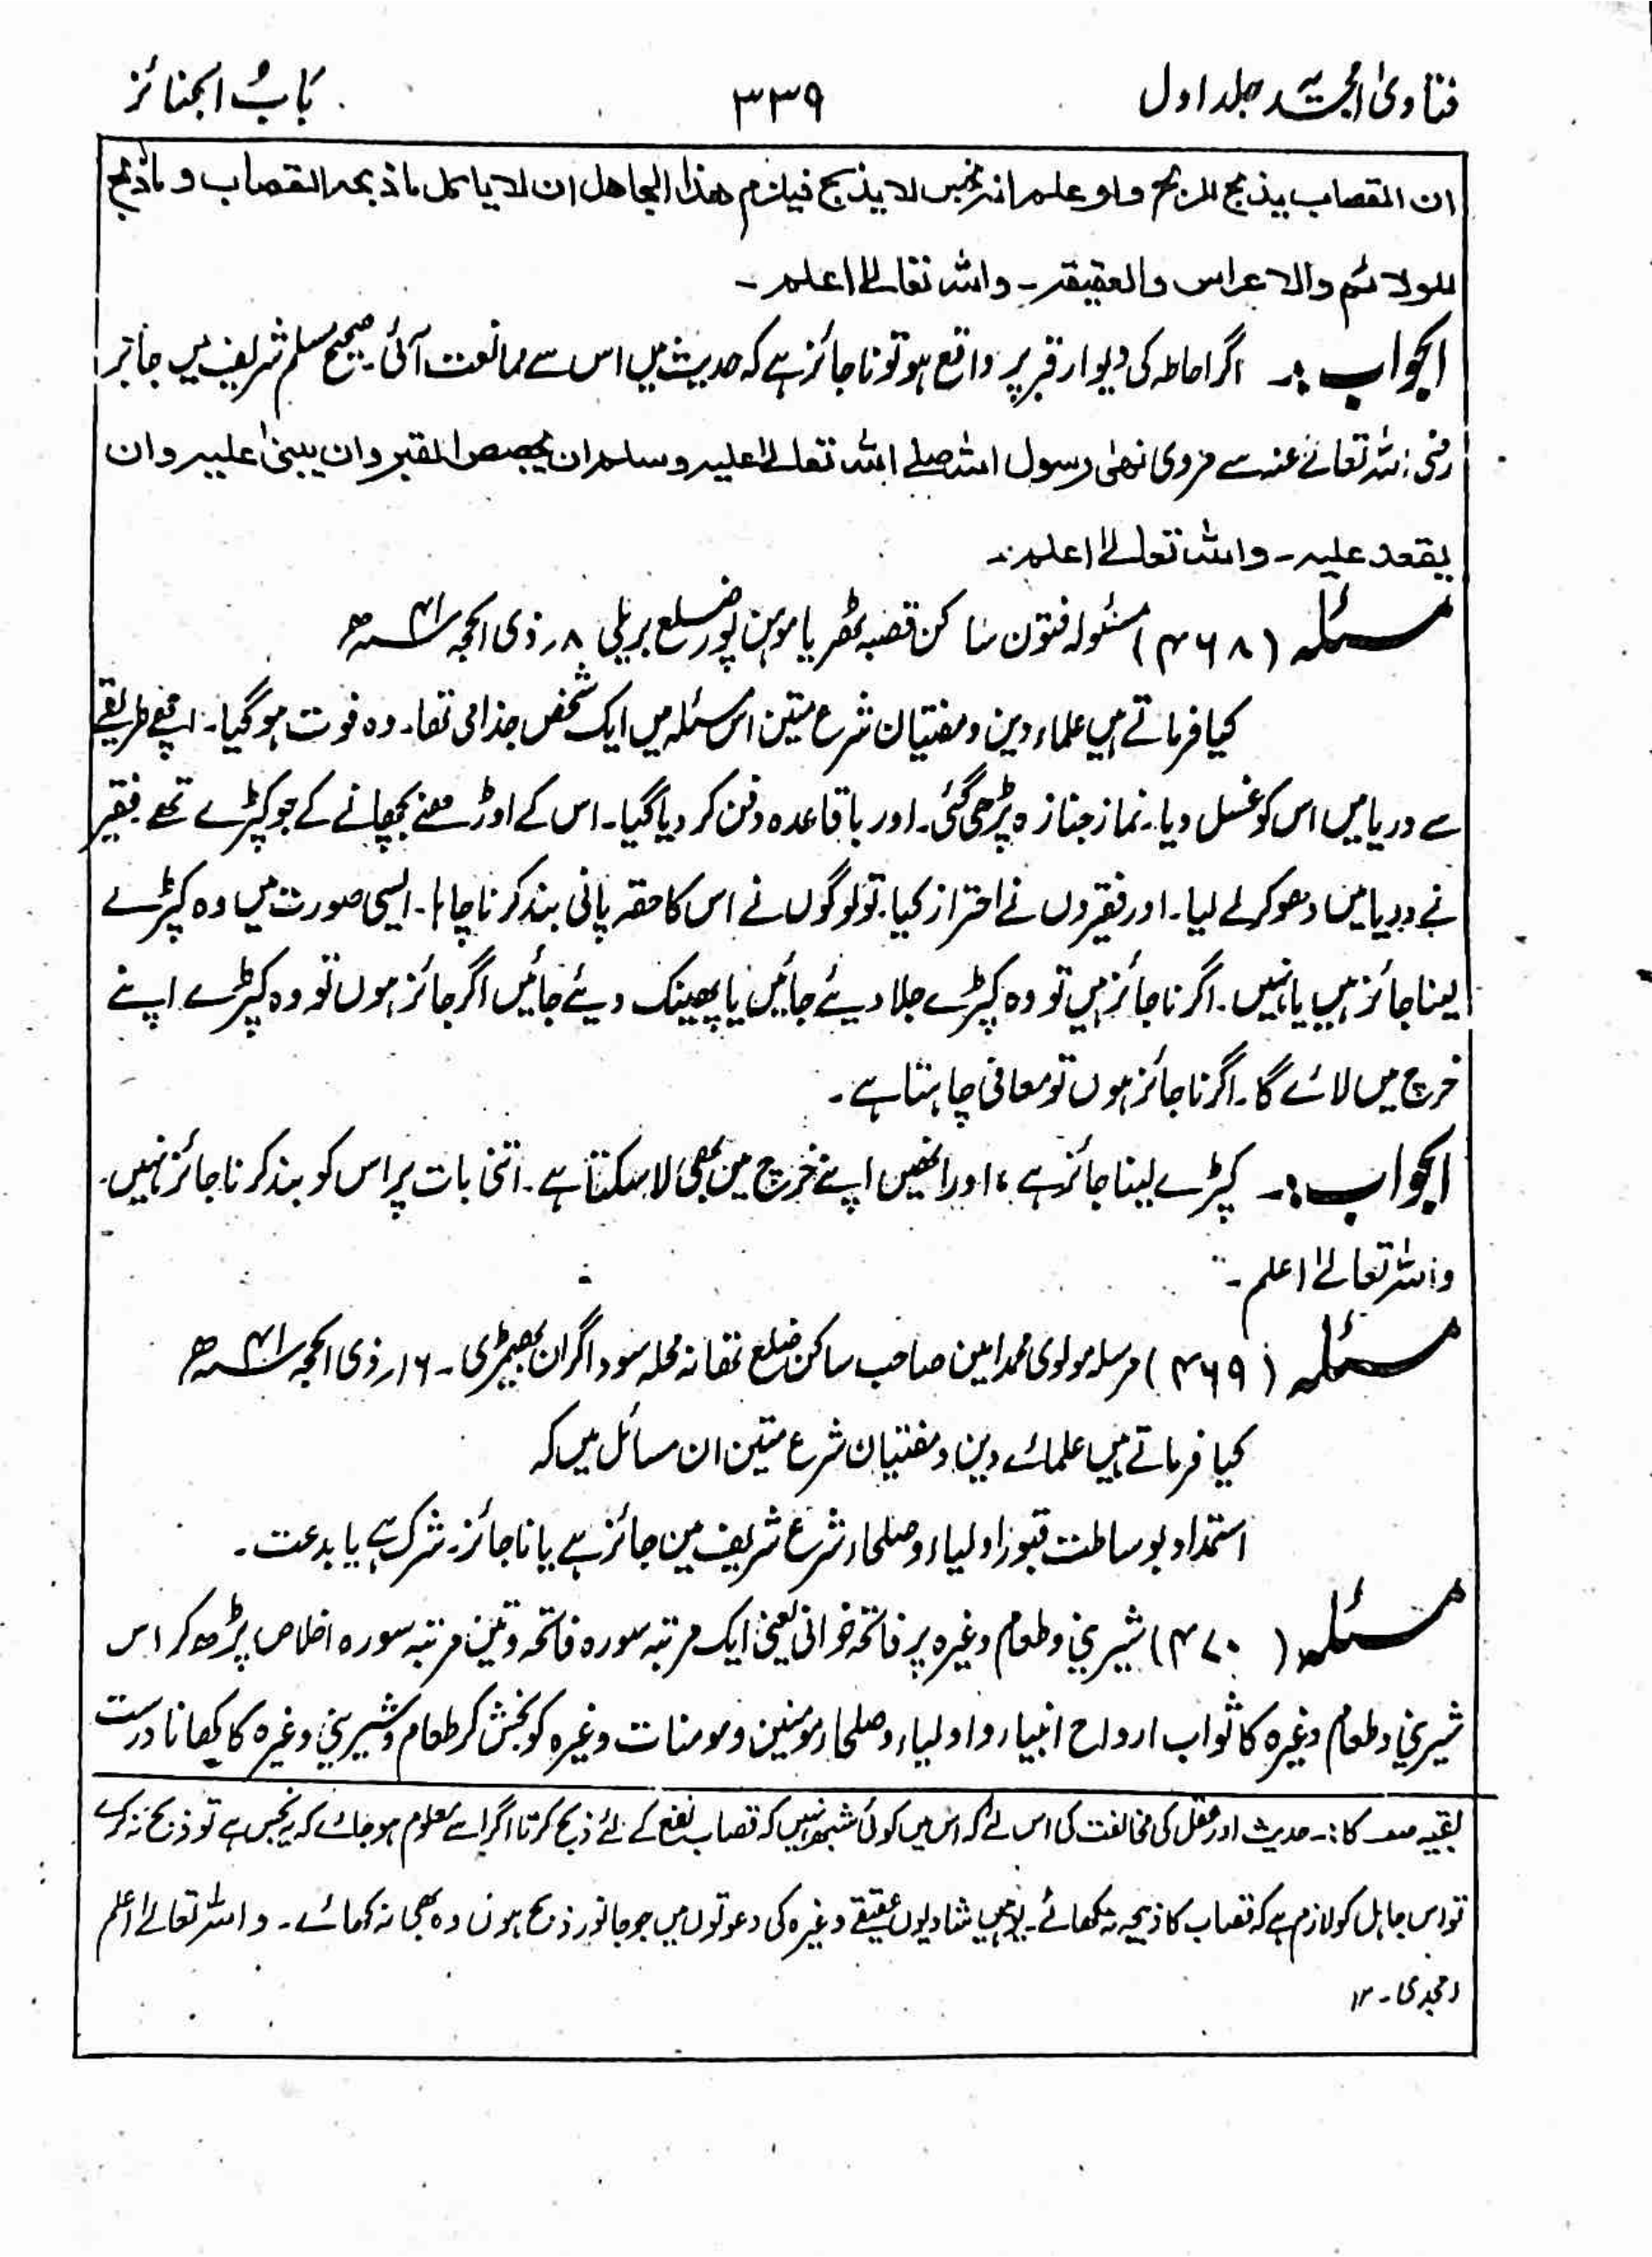 فتاویٰ امجدیہ جلد اول
۳۳۹
بَابُ الجنائز
ان القصاب یذبح للربح ولو علم انہ نجس لا یذبح فیلزم ھذا الجاھل ان لا یاکل ما ذبحہ القصاب و ما ذبح
للولائم والاعراس والعقیقۃ۔ واللہ تعالیٰ اعلم۔
الجواب:۔ اگر احاطہ کی دیوار قبر پر واقع ہو تو ناجائز ہے کہ حدیث میں اس سے ممانعت آئی۔ صحیح مسلم شریف میں جابر
رضی اللہ تعالےٰ عنہ سے مروی نھیٰ رسول اللہ صلے اللہ تعالےٰ علیہ وسلم ان یجصص القبر وان یبنیٰ علیہ وان
یقعد علیہ۔ واللہ تعالےٰ اعلم۔
مسئلہ (۴۶۸) مسئولہ فتون ساکن قصبہ بٹھریا موہن پور ضلع بریلی ۸؍ ذی الحجہ ۴۱ سنہ ھ
کیا فرماتے ہیں علماء دین و مفتیان شرع متین اس مسئلہ میں ایک شخص جذامی تھا۔ وہ فوت ہو گیا۔ اچھے طریقے
سے دریا میں اس کو غسل دیا۔ نماز جنازہ پڑھی گئی۔ اور باقاعدہ دفن کر دیا گیا۔ اس کے اوڑھنے بچھانے کے جو کپڑے تھے فقیر
نے دریا میں دھو کر لے لیا۔ اور فقیروں نے احتراز کیا۔ تو لوگوں نے اس کا حقہ پانی بند کرنا چاہا۔ ایسی صورت میں وہ کپڑے
لینا جائز ہیں یا نہیں۔ اگر ناجائز ہیں تو وہ کپڑے جلا دیئے جائیں یا پھینک دیئے جائیں اگر جائز ہوں تو وہ کپڑے اپنے
خرچ میں لائے گا۔ اگر ناجائز ہوں تو معافی چاہتا ہے۔
الجواب:۔ کپڑے لینا جائز ہے، اور انھیں اپنے خرچ میں بھی لا سکتا ہے۔ اتنی بات پر اس کو بند کرنا جائز نہیں۔
واللہ تعالےٰ اعلم۔
مسئلہ (۴۶۹) مرسلہ مولوی محمد امین صاحب ساکن ضلع تھانہ محلہ سوداگران بھیمڑی۔ ۱۶؍ ذی الحجہ ۴۱ سنہ ھ
کیا فرماتے ہیں علمائے دین و مفتیان شرع متین ان مسائل میں کہ
استمداد بوساطت قبور اولیاء و صلحاء شرع شریف میں جائز ہے یا ناجائز۔ شرک ہے یا بدعت۔
مسئلہ (۴۷۰) شیرینی و طعام وغیرہ پر فاتحہ خوانی یعنی ایک مرتبہ سورہ فاتحہ و تین مرتبہ سورہ اخلاص پڑھ کر اس
شیرینی و طعام وغیرہ کا ثواب ارواح انبیاء و اولیاء و صلحاء و مومنین و مومنات وغیرہ کو بخش کر طعام و شیرینی وغیرہ کا کھانا درست
بقیہ صفحہ کا:۔ حدیث اور عقل کی مخالفت کی اس لئے کہ اس میں کوئی شبہ نہیں کہ قصاب نفع کے لئے ذبح کرتا اگر اسے معلوم ہو جائے کہ یہ نجس ہے تو ذبح نہ کرے
تو اس جاہل کو لازم ہے کہ قصاب کا ذبیحہ نہ کھائے۔ یوہیں شادیوں عقیقے وغیرہ کی دعوتوں میں جو جانور ذبح ہوں وہ بھی نہ کھائے۔ واللہ تعالےٰ اعلم
امجدی۔ ۱۲